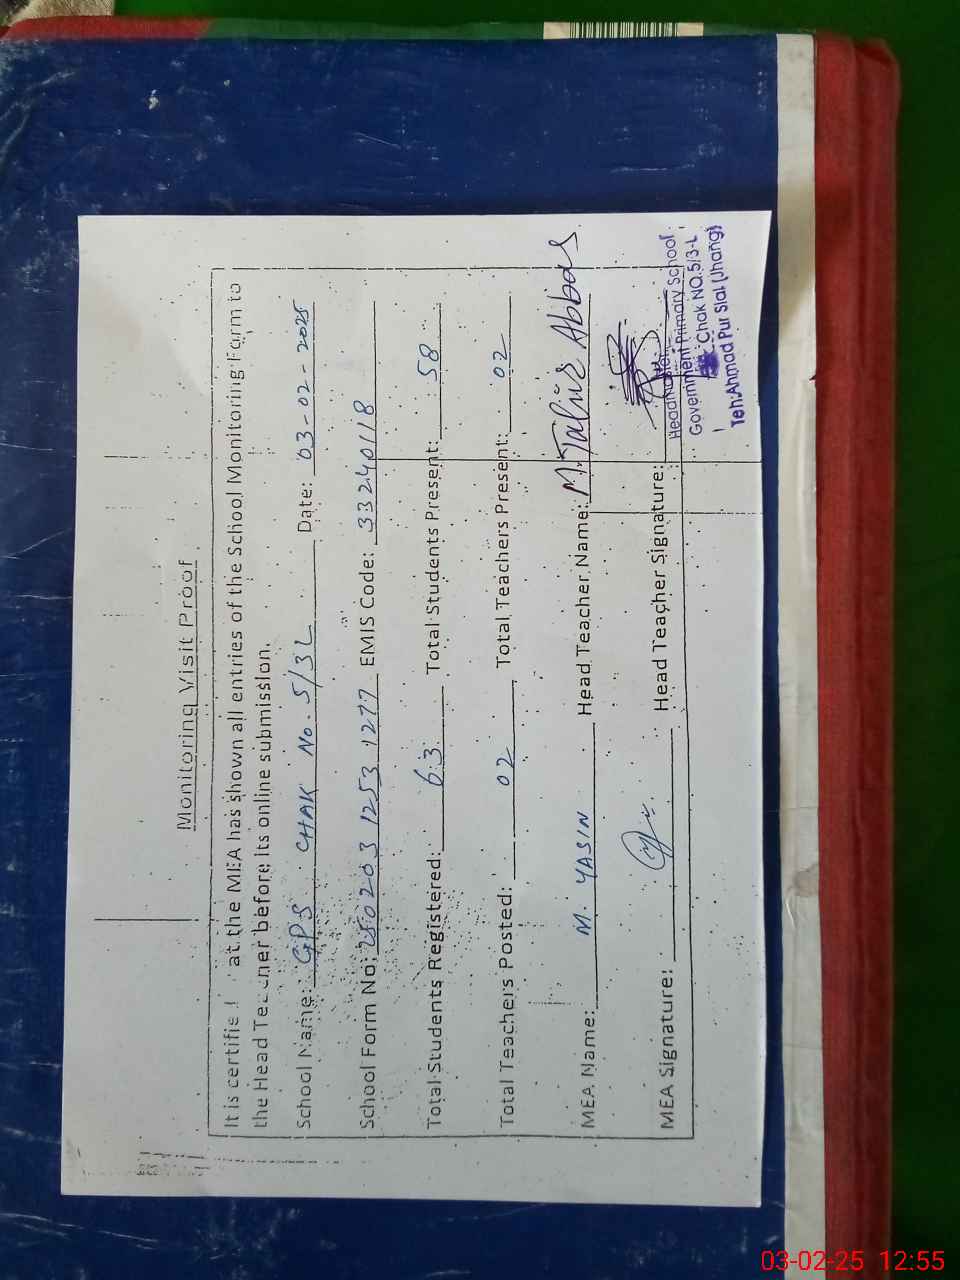 Monitoring Visit Proof
It is certifie at the MEA has shown all entries of the School Monitoring Form to
the Head Teacher before its online submission.
School Name: GPS CHAK No. 5/3L Date: 03-02-2025
School Form No: 250203 1253 1277 EMIS Code: 33240118
Total Students Registered: 63 Total Students Present: 58
Total Teachers Posted: 02 Total Teachers Present: 02
MEA Name: M. YASIN Head Teacher Name: M. Abbas
MEA Signature: Head Teacher Signature:
Headmaster
Government Primary School
Chak NO.5/3-L
Teh:Ahmad Pur Sial (Jhang)
03-02-25 12:55